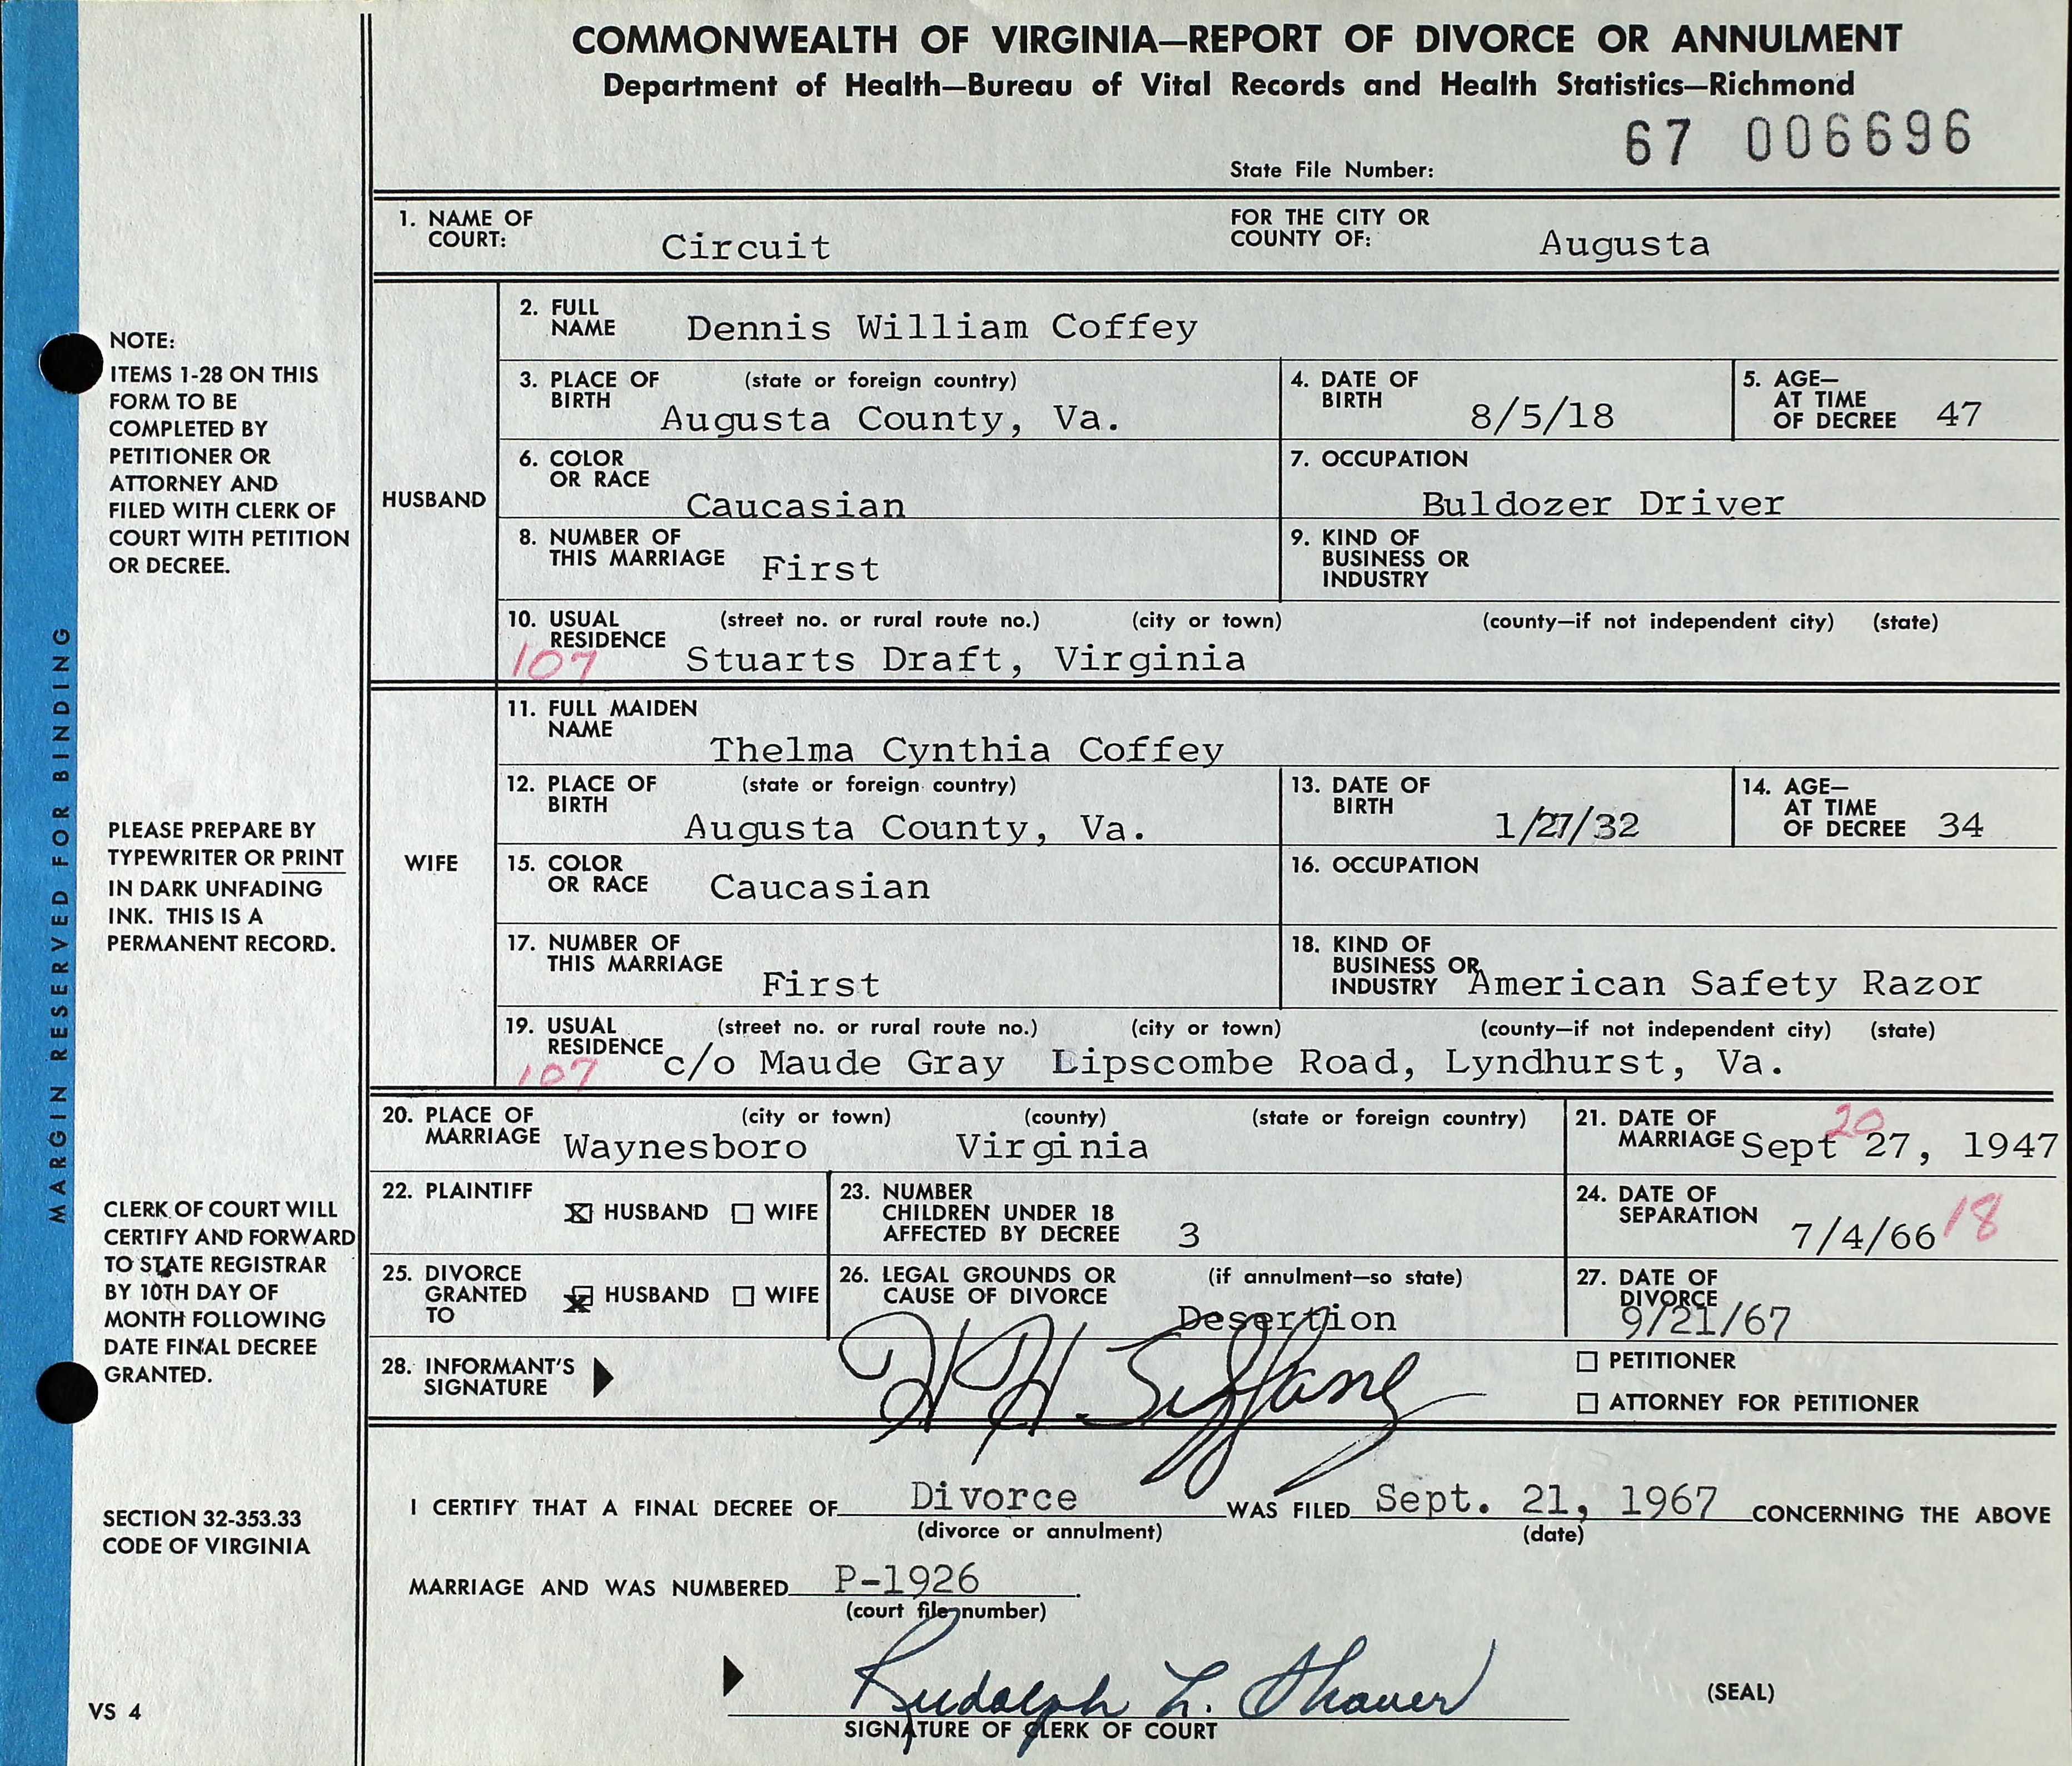 COMMONWEALTH OF VIRGINIA—REPORT OF DIVORCE OR ANNULMENT
Department of Health—Bureau of Vital Records and Health Statistics—Richmond
67 006696
State File Number:
1. NAME OF COURT: Circuit FOR THE CITY OR COUNTY OF: Augusta
HUSBAND
2. FULL NAME Dennis William Coffey
3. PLACE OF BIRTH (state or foreign country) Augusta County, Va.
4. DATE OF BIRTH 8/5/18
5. AGE— AT TIME OF DECREE 47
6. COLOR OR RACE Caucasian
7. OCCUPATION Buldozer Driver
8. NUMBER OF THIS MARRIAGE First
9. KIND OF BUSINESS OR INDUSTRY
10. USUAL RESIDENCE (street no. or rural route no.) (city or town) (county—if not independent city) (state)
107 Stuarts Draft, Virginia
WIFE
11. FULL MAIDEN NAME Thelma Cynthia Coffey
12. PLACE OF BIRTH (state or foreign country) Augusta County, Va.
13. DATE OF BIRTH 1/27/32
14. AGE— AT TIME OF DECREE 34
15. COLOR OR RACE Caucasian
16. OCCUPATION
17. NUMBER OF THIS MARRIAGE First
18. KIND OF BUSINESS OR INDUSTRY American Safety Razor
19. USUAL RESIDENCE (street no. or rural route no.) (city or town) (county—if not independent city) (state)
107 c/o Maude Gray Lipscombe Road, Lyndhurst, Va.
20. PLACE OF MARRIAGE (city or town) (county) (state or foreign country)
Waynesboro Virginia
21. DATE OF MARRIAGE Sept 27, 1947
20
22. PLAINTIFF HUSBAND WIFE
23. NUMBER CHILDREN UNDER 18 AFFECTED BY DECREE 3
24. DATE OF SEPARATION 7/4/66 18
25. DIVORCE GRANTED TO HUSBAND WIFE
26. LEGAL GROUNDS OR CAUSE OF DIVORCE (if annulment—so state) Desertion
27. DATE OF DIVORCE 9/21/67
28. INFORMANT'S SIGNATURE
PETITIONER
ATTORNEY FOR PETITIONER
I CERTIFY THAT A FINAL DECREE OF Divorce WAS FILED Sept. 21, 1967 CONCERNING THE ABOVE
(divorce or annulment) (date)
MARRIAGE AND WAS NUMBERED P-1926.
(court file number)
Rudolph L. Shaver
SIGNATURE OF CLERK OF COURT
(SEAL)
MARGIN RESERVED FOR BINDING
NOTE:
ITEMS 1-28 ON THIS
FORM TO BE
COMPLETED BY
PETITIONER OR
ATTORNEY AND
FILED WITH CLERK OF
COURT WITH PETITION
OR DECREE.
PLEASE PREPARE BY
TYPEWRITER OR PRINT
IN DARK UNFADING
INK. THIS IS A
PERMANENT RECORD.
CLERK OF COURT WILL
CERTIFY AND FORWARD
TO STATE REGISTRAR
BY 10TH DAY OF
MONTH FOLLOWING
DATE FINAL DECREE
GRANTED.
SECTION 32-353.33
CODE OF VIRGINIA
VS 4